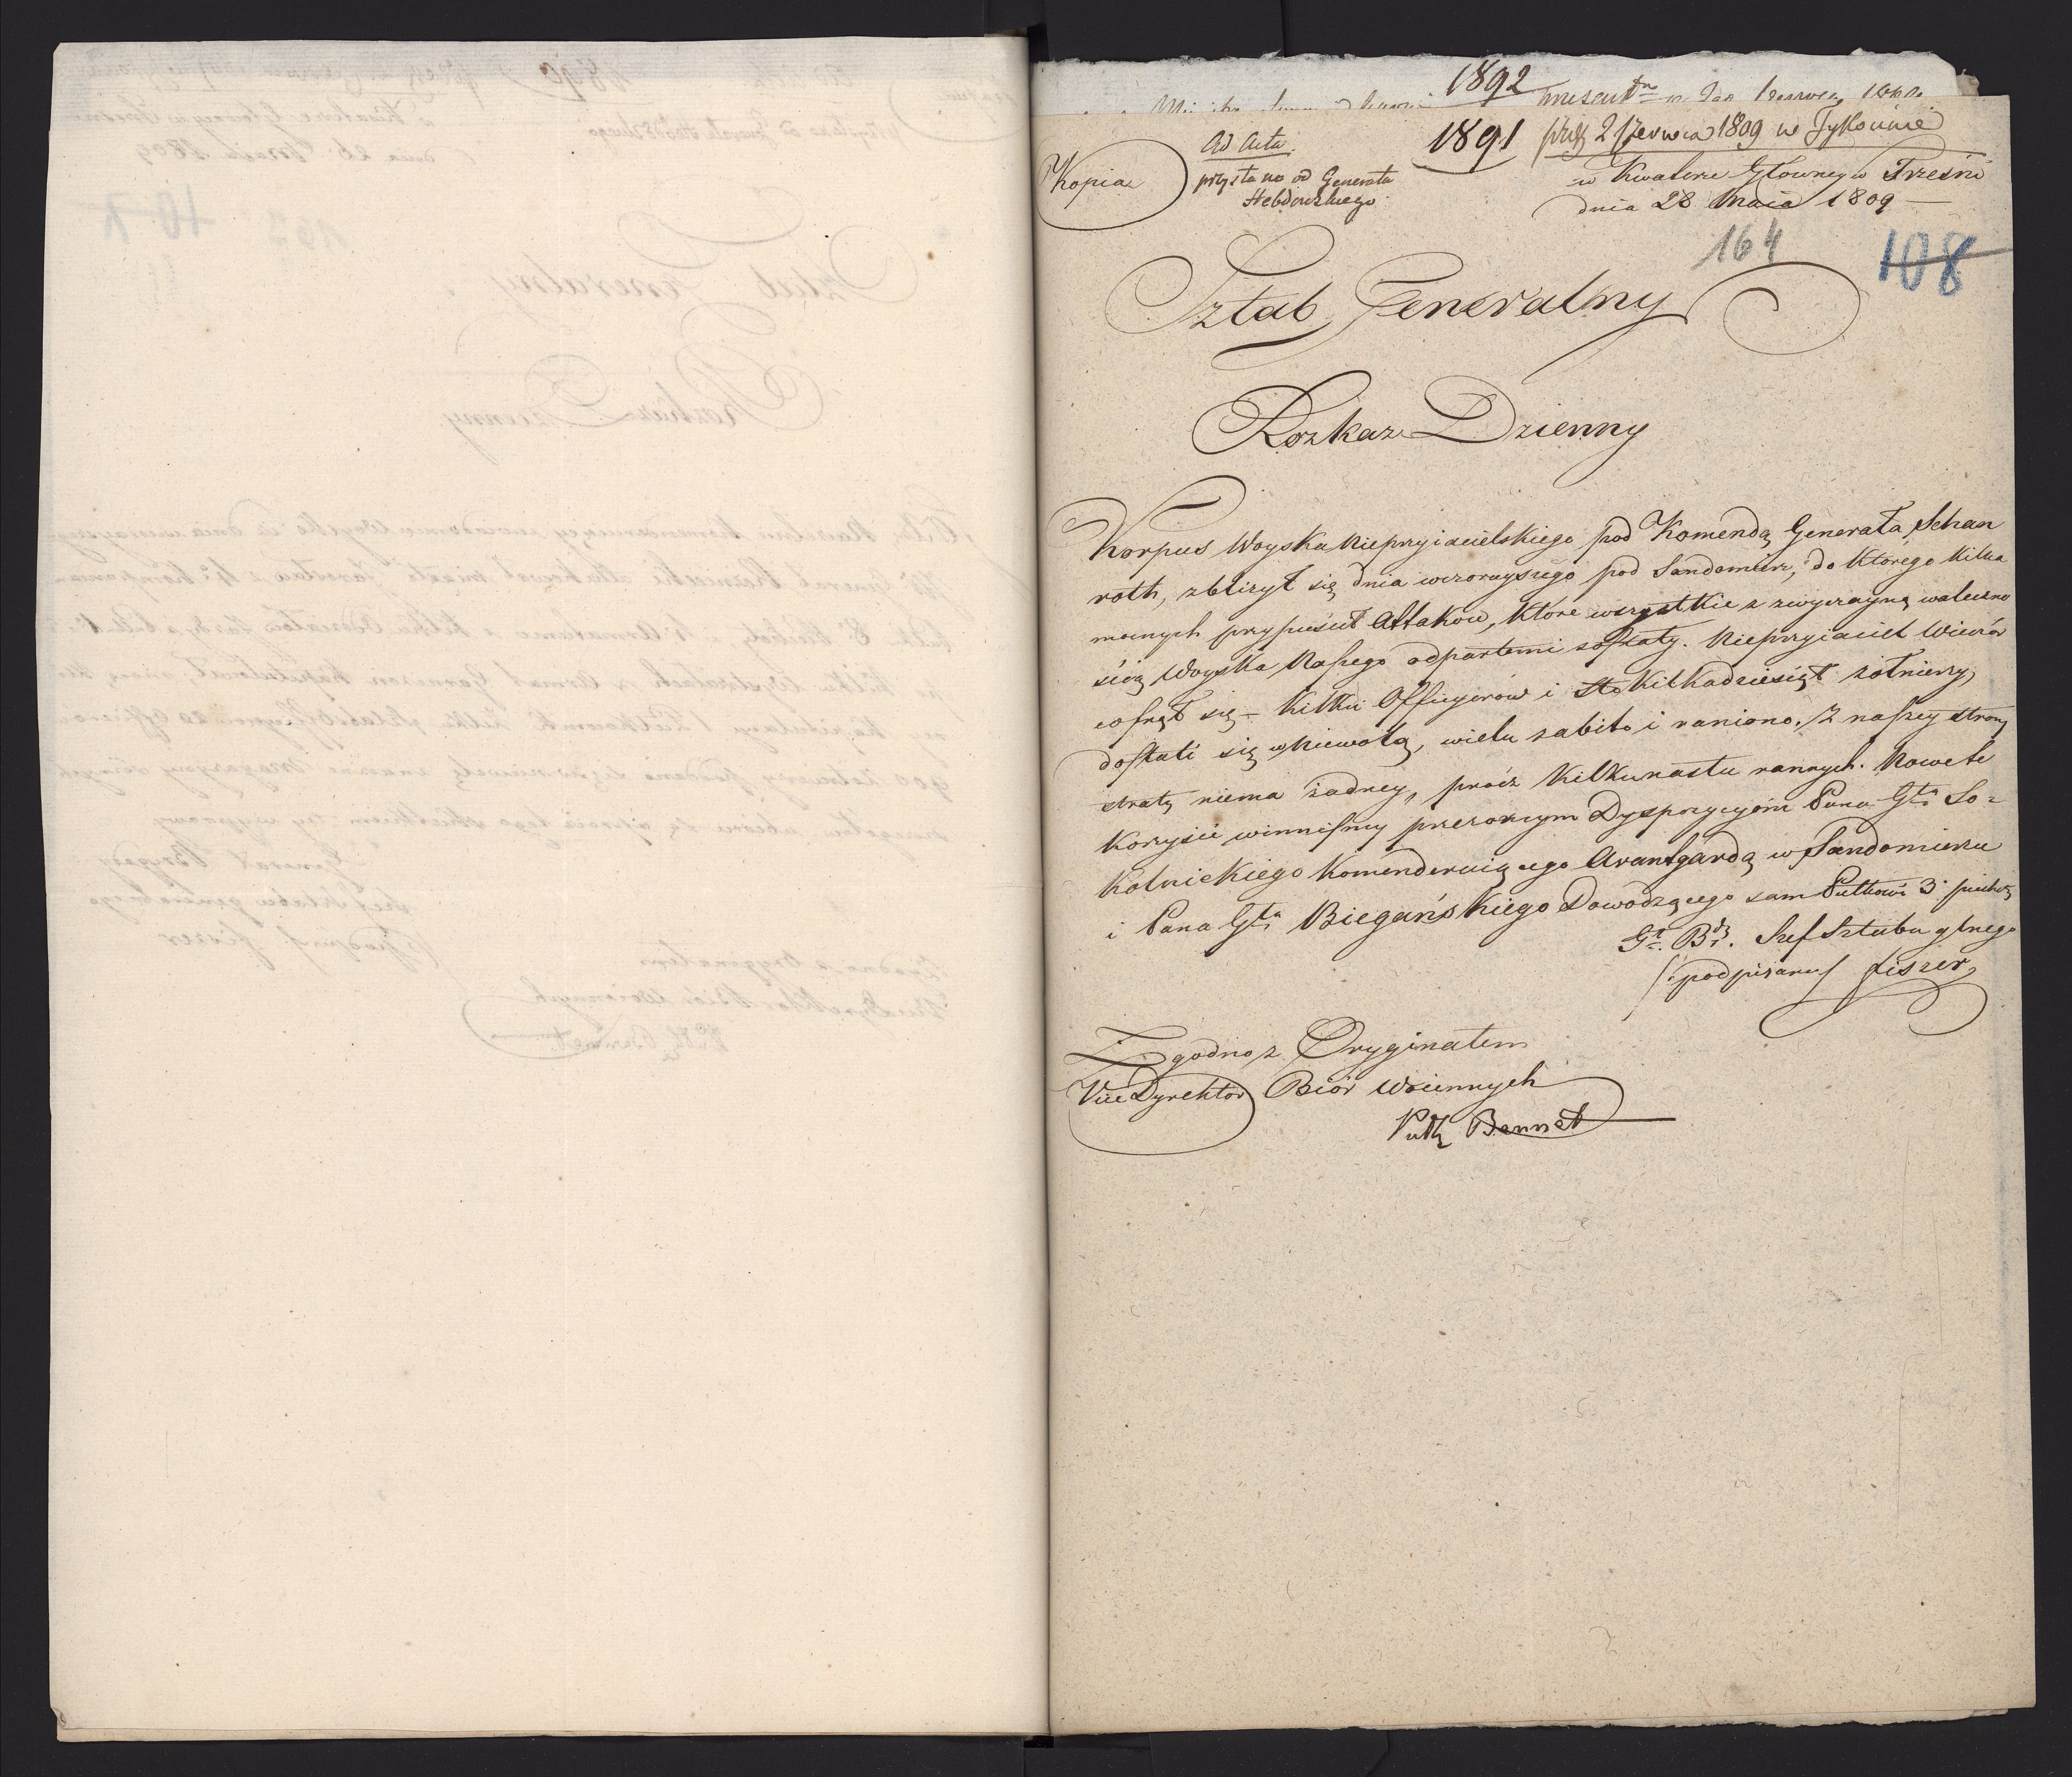 1892
1891
Ad Acta
Kopia
przysłana od Generała
Hebdowskiego
2 Czerwca 1809 w Tykocinie
w Kwaterze Główney w Trześni
dnia 28 Maia 1809 —
164
108
Sztab Generalny
Rozkaz Dzienny
Korpus Woyska Nieprzyiacielskiego pod Komendą Generała Schau
roth, zbliżył się dnia wczorayszego pod Sandomirz, do którego kilka
mocnych przypuścił Attaków, które wszystkie z zwyczayną waleczno
ścią Woyska Naszego odpartemi zostały. Nieprzyiaciel Wieczór
cofnął się — Kilku Officyerów i Sto Kilkadziesiąt żołnierzy,
dostali się w Niewolą, wielu zabito i raniono. Z naszey strony
straty niema żadney, prócz Kilkunastu rannych. Nowe te
Korzyści winniśmy przezornym Dyspozycyiom Pana Gła So=
kolnickiego Komenderuiącego Avantgardą w Sandomierzu
i Pana Gła Biegańskiego Dowodzącego sam Pułkowi 3 piechoty
Gł. Bdy. Szef Sztabu głnego
/: podpisany / Fiszer
Zgodno z Oryginałem
Vice Dyrektor Biór Woiennych
Pułk Bennet